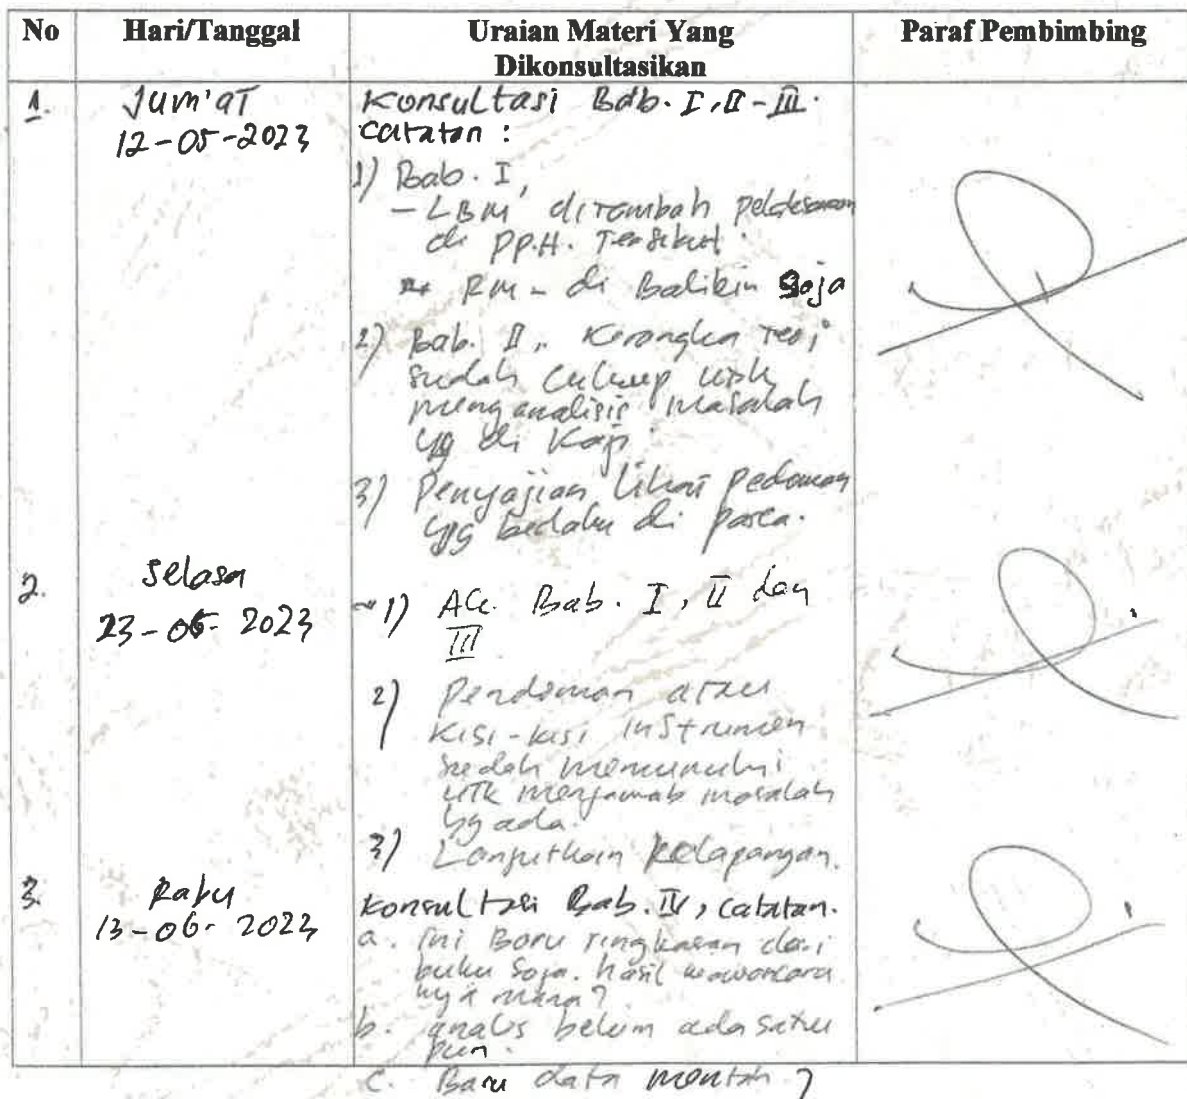 No Hari/Tanggal Uraian Materi Yang Dikonsultasikan Paraf Pembimbing
1. Jum'at
12-05-2023
Konsultasi Bab. I, II - III.
catatan :
1) Bab. I,
- LBM ditambah pelaksanaan
di PP.H. Tersebut.
RM - di Balikin saja
2) Bab. II, Kerangka Teori
sudah cukup utk
menganalisis masalah
yg di Kaji.
3) Penyajian lihat pedoman
yg berlaku di pasca.
2. Selasa
23-05-2023
1) Acc. Bab. I, II dan
III
2) Pendoman atau
Kisi-kisi instrumen
sudah memenuhi
utk menjawab masalah
yg ada.
3) Lanjutkan kelapangan.
3. Rabu
13-06-2023
Konsultasi Bab. IV, catatan.
a. Ini Baru ringkasan dari
buku saja. hasil wawancara
nya mana?
b. analis belum ada satu
pun.
c. Baru data mentah ?